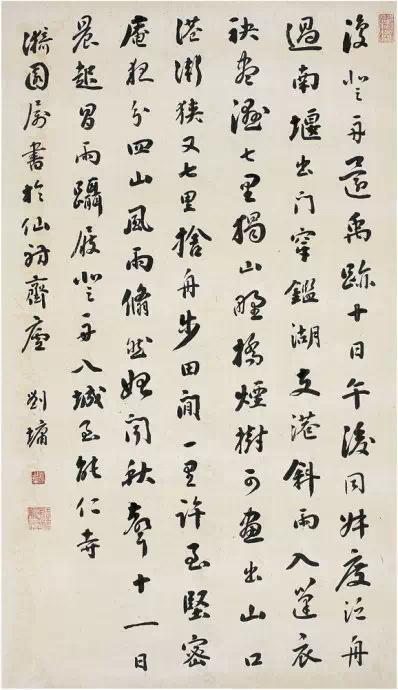 復登舟還禹跡十日午後同叔度泛舟
過南堰出門穿鑑湖支港斜雨入篷衣
袂盡濕七里獨山野橋煙樹可畫出山口
港漸狹又七里捨舟步田間一里許至堅密
庵夜分四山風雨翛然始聞秋聲十一日
晨起冒雨躡屐登舟入城至能仁寺
漪園屬書於仙舫齋廬 劉墉